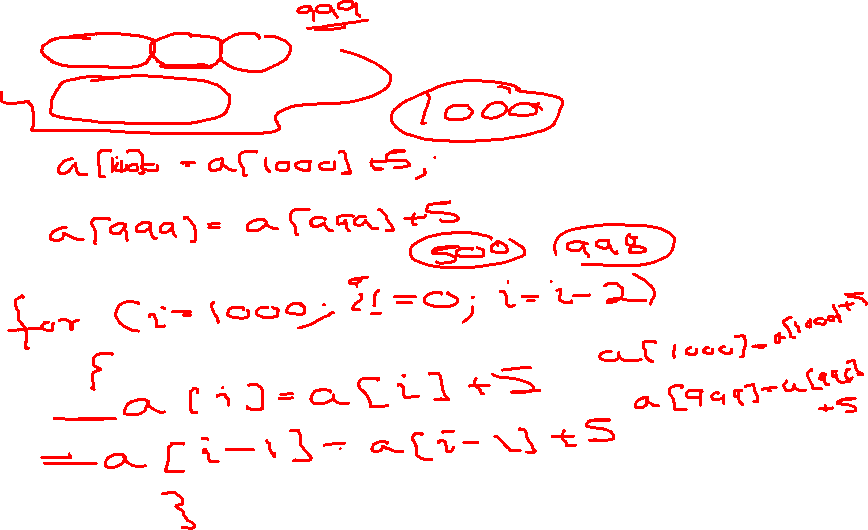 999
1000
a[1000 = a[1000] + 5;
a[999] = a[999] + 5
500 998
for (i = 1000; i != 0; i = i - 2)
{
a[i] = a[i] + 5
a[i-1] = a[i-1] + 5
}
a[1000] = a[1000] + 5
a[999] = a[999] + 5